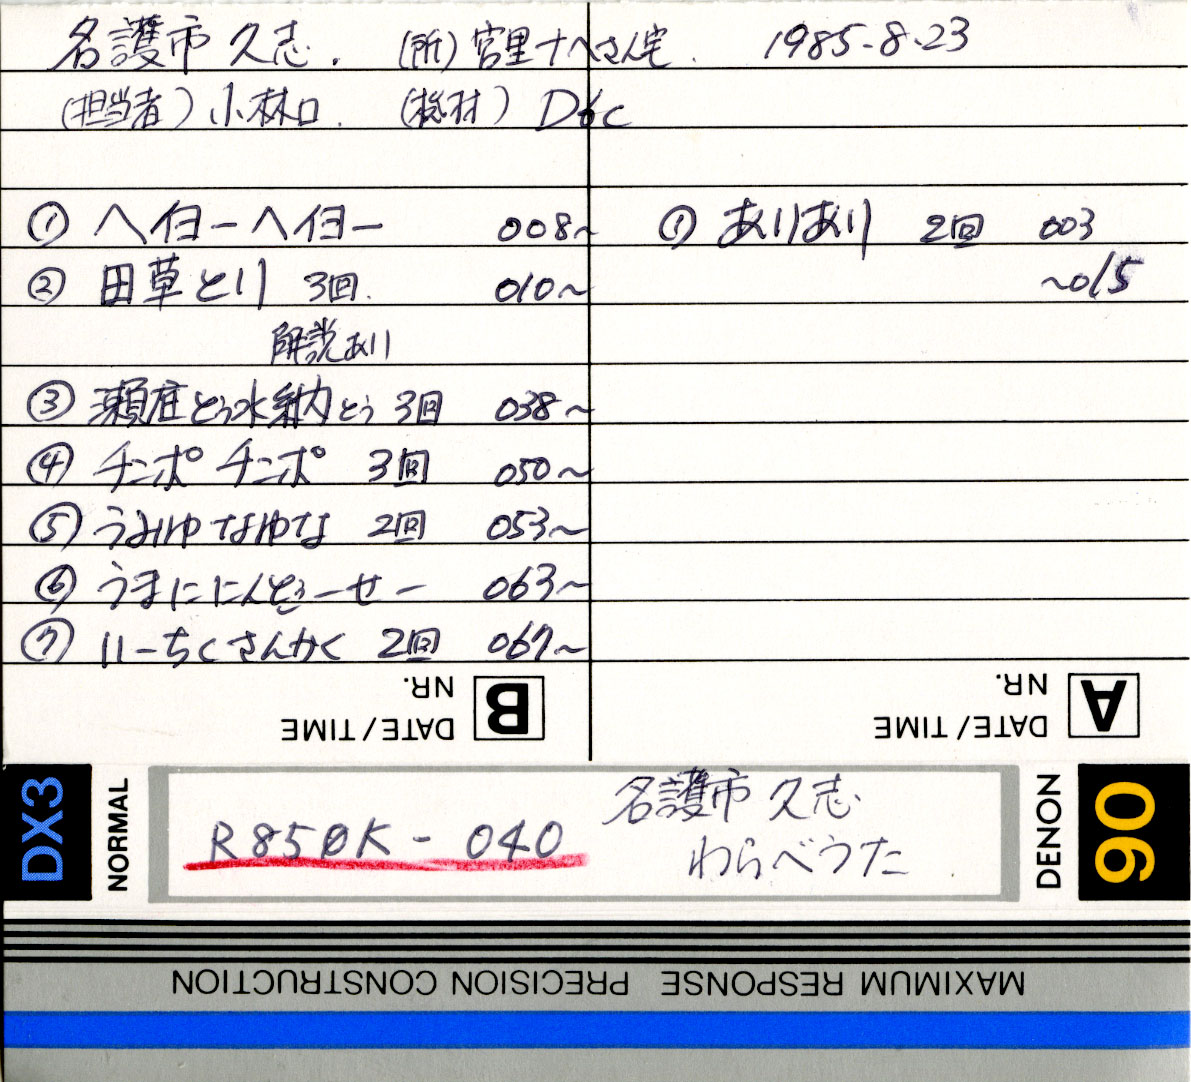 名護市 久志. (所) 宮里ナヘさん宅. 1985-8-23
(担当者) 小林口. (機材) D6c
① ヘイヨーヘイヨー 008~
② 田草とり 3回. 010~
解説あり
③ 瀬底とぅ水納とぅ 3回 038~
④ チンポ チンポ 3回 050~
⑤ うみゆなゆな 2回 053~
⑥ うまににんどぅーせー 063~
⑦ いーちくさんかく 2回 067~
① ありあり 2回 003
~015
B DATE/TIME NR.
A DATE/TIME NR.
DX3 NORMAL
R85ØK-040
名護市 久志
わらべうた
DENON 90
MAXIMUM RESPONSE PRECISION CONSTRUCTION